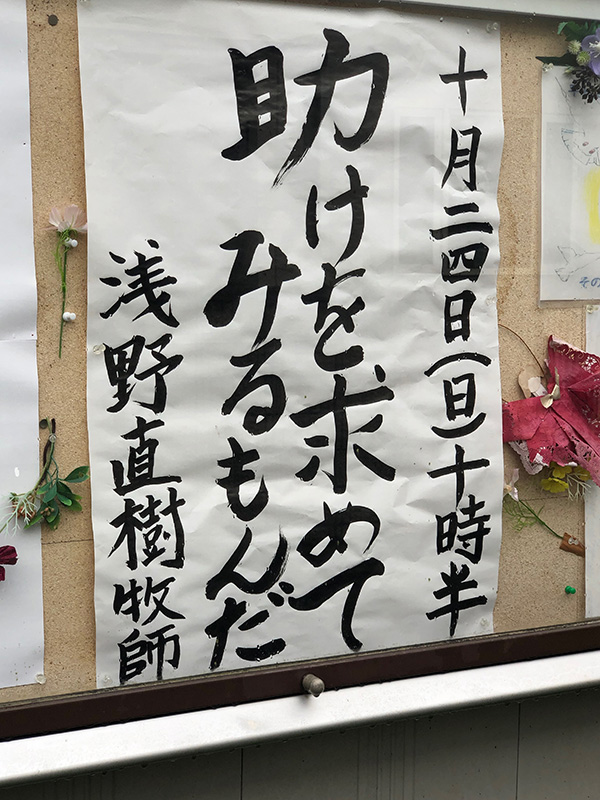 十月二四日(日)十時半
助けを求めて
みるもんだ
浅野直樹牧師
その